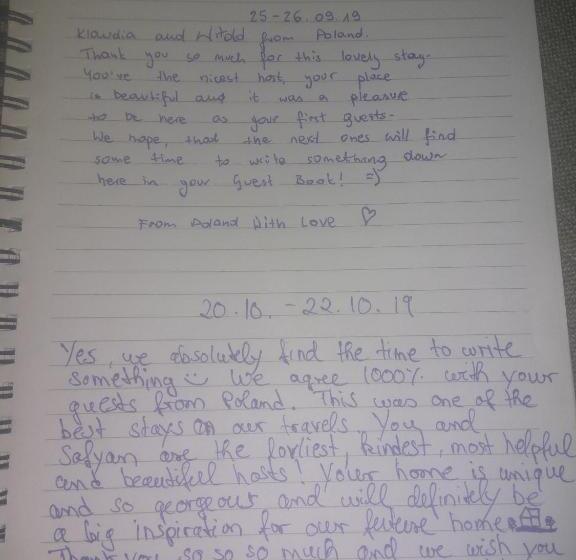 25-26.09.19
Klaudia and Witold from Poland.
Thank you so much for this lovely stay.
You've the nicest host, your place
is beautiful and it was a pleasure
to be here as your first guests.
We hope, that the next ones will find
some time to write something down
here in your Guest Book! =)
From Poland With Love ♡
20.10. - 22.10.19
Yes, we absolutely find the time to write
something We agree 1000% with your
guests from Poland. This was one of the
best stays on our travels. You and
Safyan are the lovliest, kindest, most helpful
and beautiful hosts! Your home is unique
and so georgeous and will definitely be
a big inspiration for our future home
Thank you so so so much and we wish you